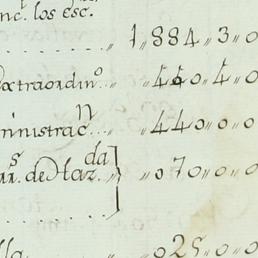 nc. los esc.
1,,884,,3,,0
extraordin.º ,,460,,4,,0
ministrac.n ,,440,,0,,0
s de Haz.da ,,070,,0,,0
lla ,,025,,0,,0